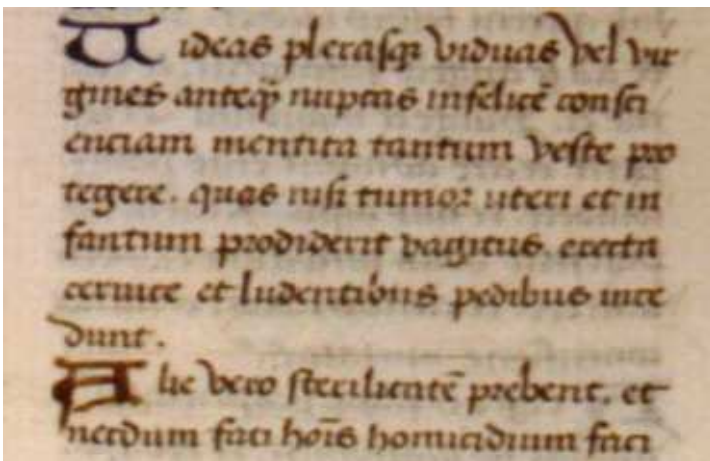 Uideas plerasqꝫ viduas vel vir
gines anteqꝫ nuptas infelicē consci
enciam mentita tantum veste pro
tegere. quas nisi tumor uteri et in
fantium prodiderit vagitus. erecta
ceruice et ludentibus pedibus ince
dunt.
Alie vero sterilitatē prebent. et
necdum sati hoīs homicidium faci